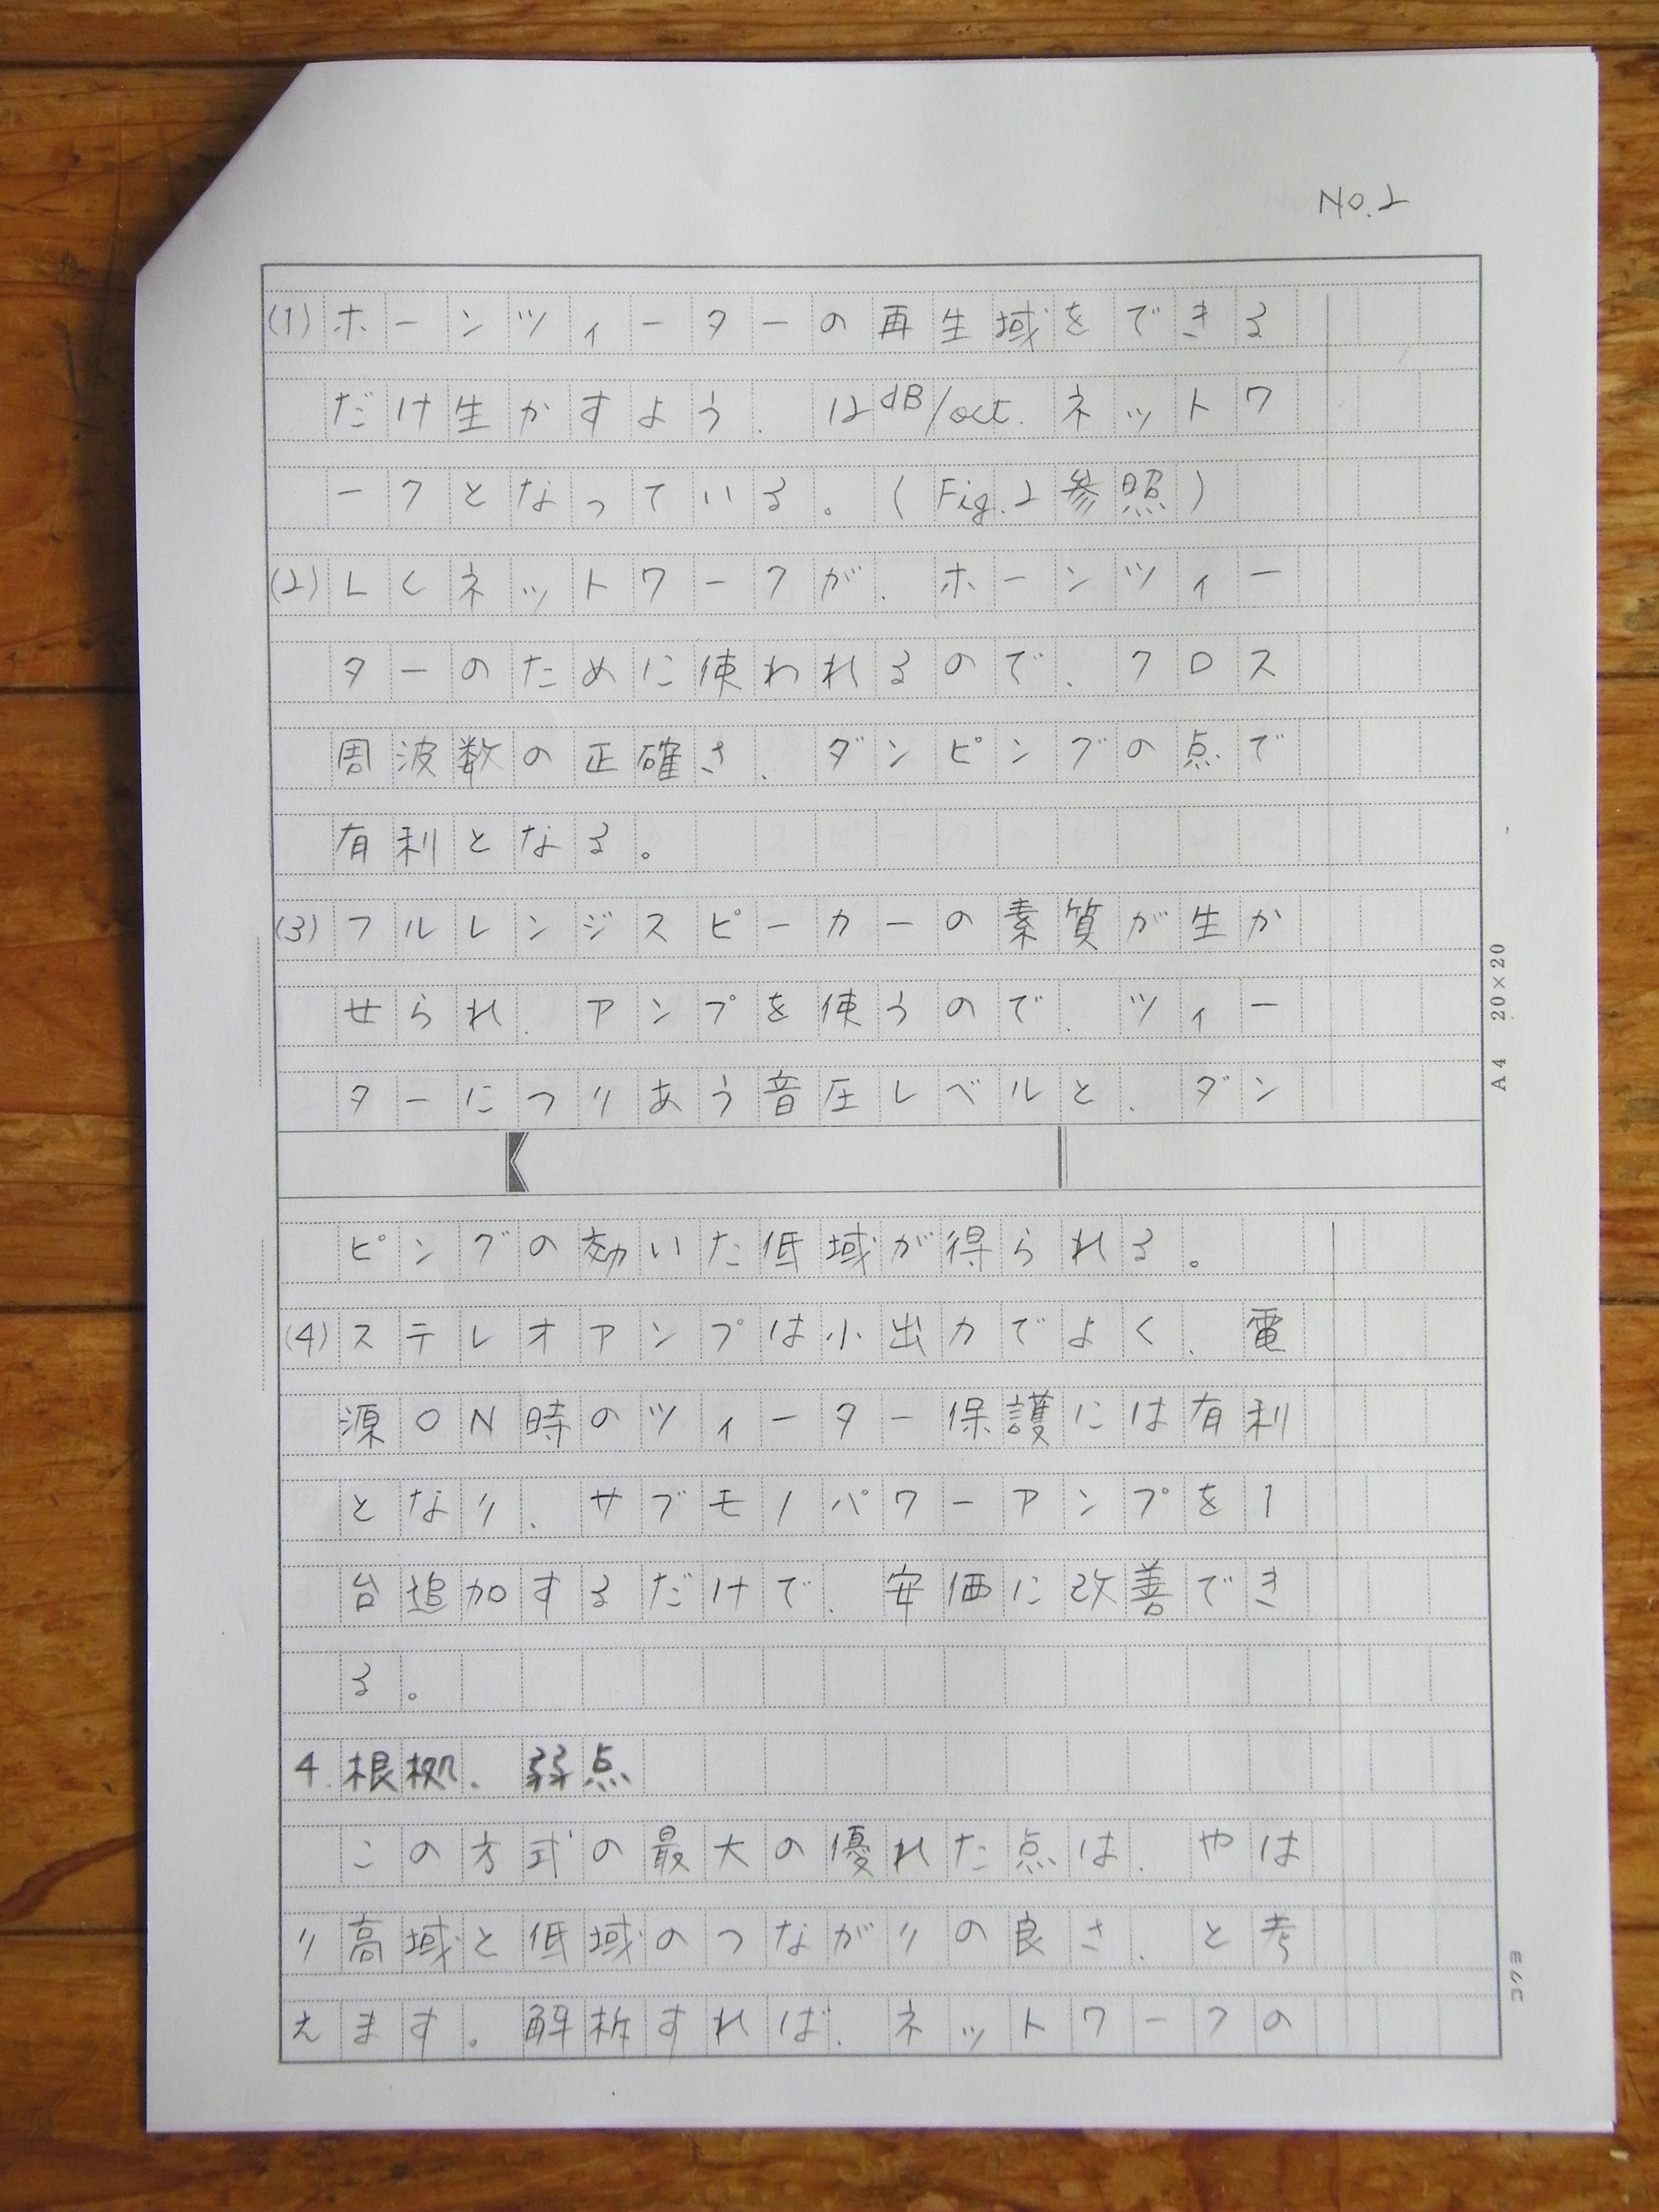 No.2
(1)ホーンツィーターの再生域をできる
だけ生かすよう、12dB/oct.ネットワ
ークとなっている。(Fig.2参照)
(2)LCネットワークが、ホーンツィー
ターのために使われるので、クロス
周波数の正確さ、ダンピングの点で
有利となる。
(3)フルレンジスピーカーの素質が生か
せられ、アンプを使うので、ツィー
ターにつりあう音圧レベルと、ダン
ピングの効いた低域が得られる。
(4)ステレオアンプは小出力でよく、電
源ON時のツィーター保護には有利
となり、サブモノパワーアンプを1
台追加するだけで、安価に改善でき
る。
4.根拠、弱点
この方式の最大の優れた点は、やは
り高域と低域のつながりの良さ、と考
えます。解析すれば、ネットワークの
A4 20×20
コクヨ